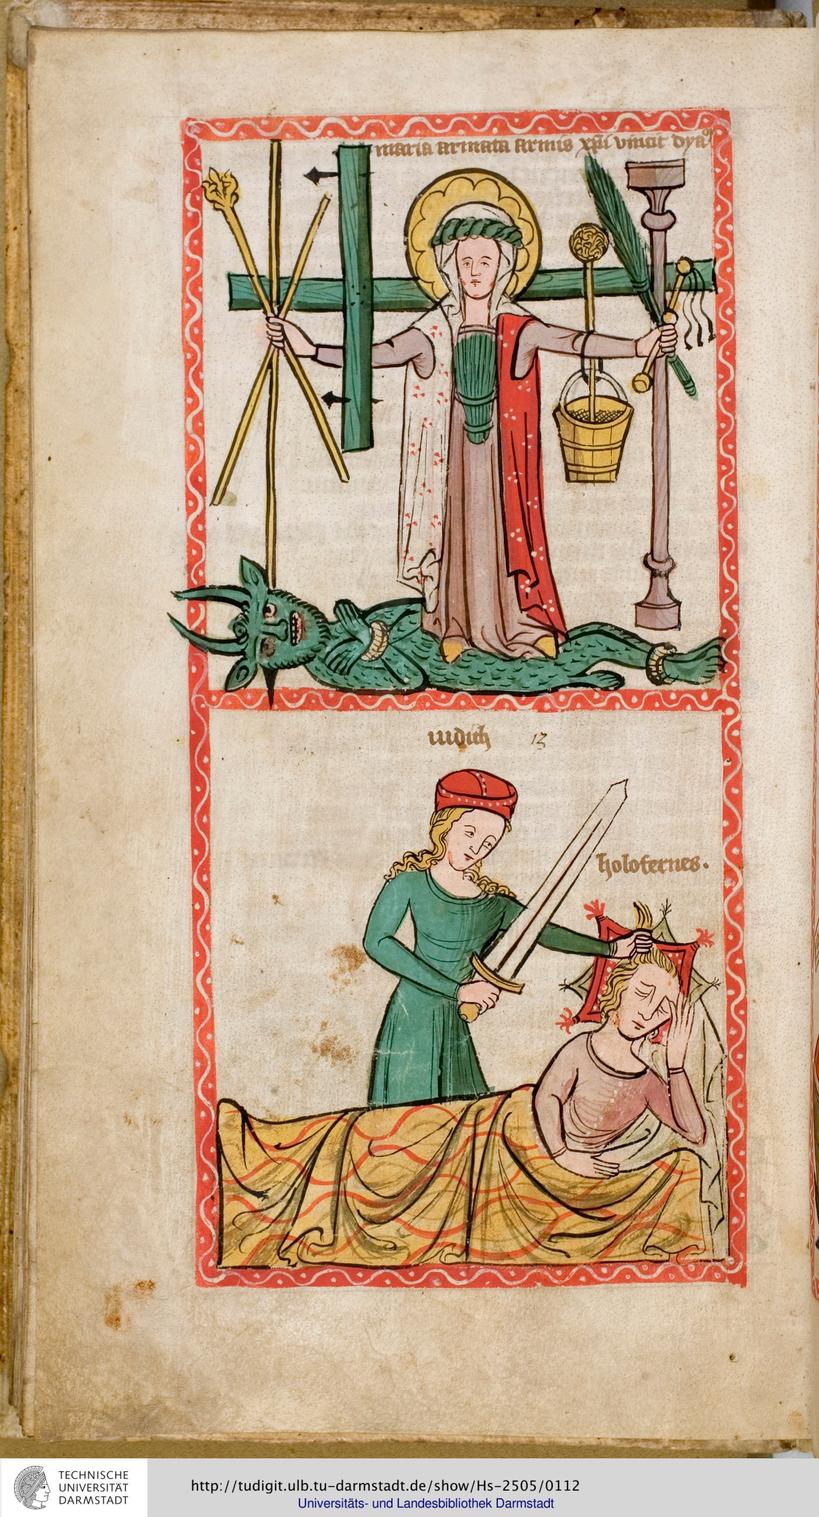 maria armata armis xpi vincit dya
iudich 13
holofernes.
TECHNISCHE
UNIVERSITÄT
DARMSTADT
http://tudigit.ulb.tu-darmstadt.de/show/Hs-2505/0112
Universitäts- und Landesbibliothek Darmstadt